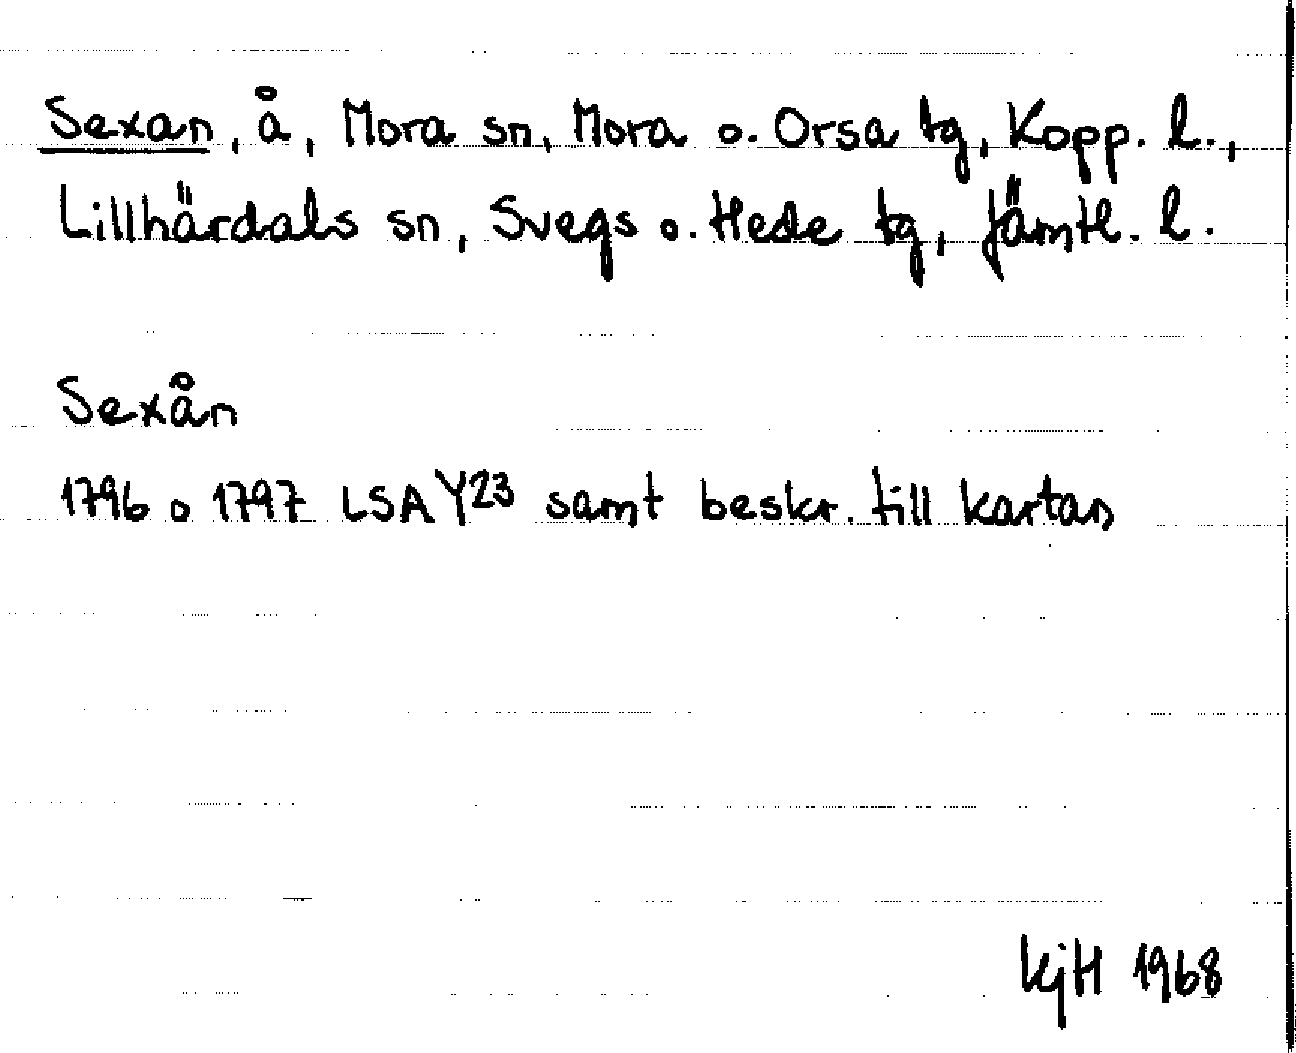 Sexan, å, Mora sn, Mora o. Orsa tg, Kopp. l.,
Lillhärdals sn, Svegs o. Hede tg, Jämtl. l.
Sexån
1796 o 1797 LSA Y23 samt beskr. till kartan
KjH 1968